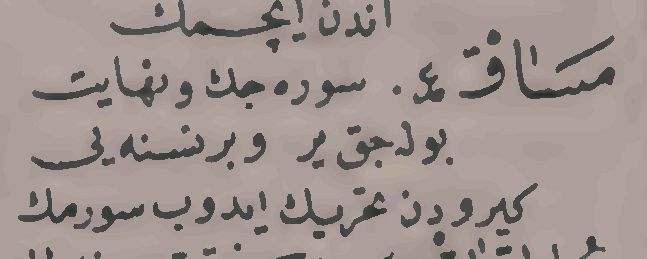 اندن ایچمك
مساق ع. سوره جك و نهایت
بوله جق یر و بر نسنه یی
كیرودن تحریك ایدوب سورمك